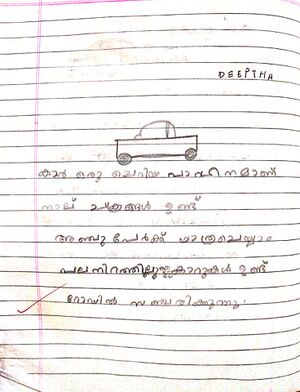 DEEPTHA
കാർ ഒരു ചെറിയ വാഹനമാണ്
നാല് ചക്രങ്ങൾ ഉണ്ട്
അഞ്ചു പേർക്ക് യാത്രചെയ്യാം
പലനിറത്തിലുള്ളകാറുകൾ ഉണ്ട്
റോഡിൽ സഞ്ചരിക്കുന്നു.